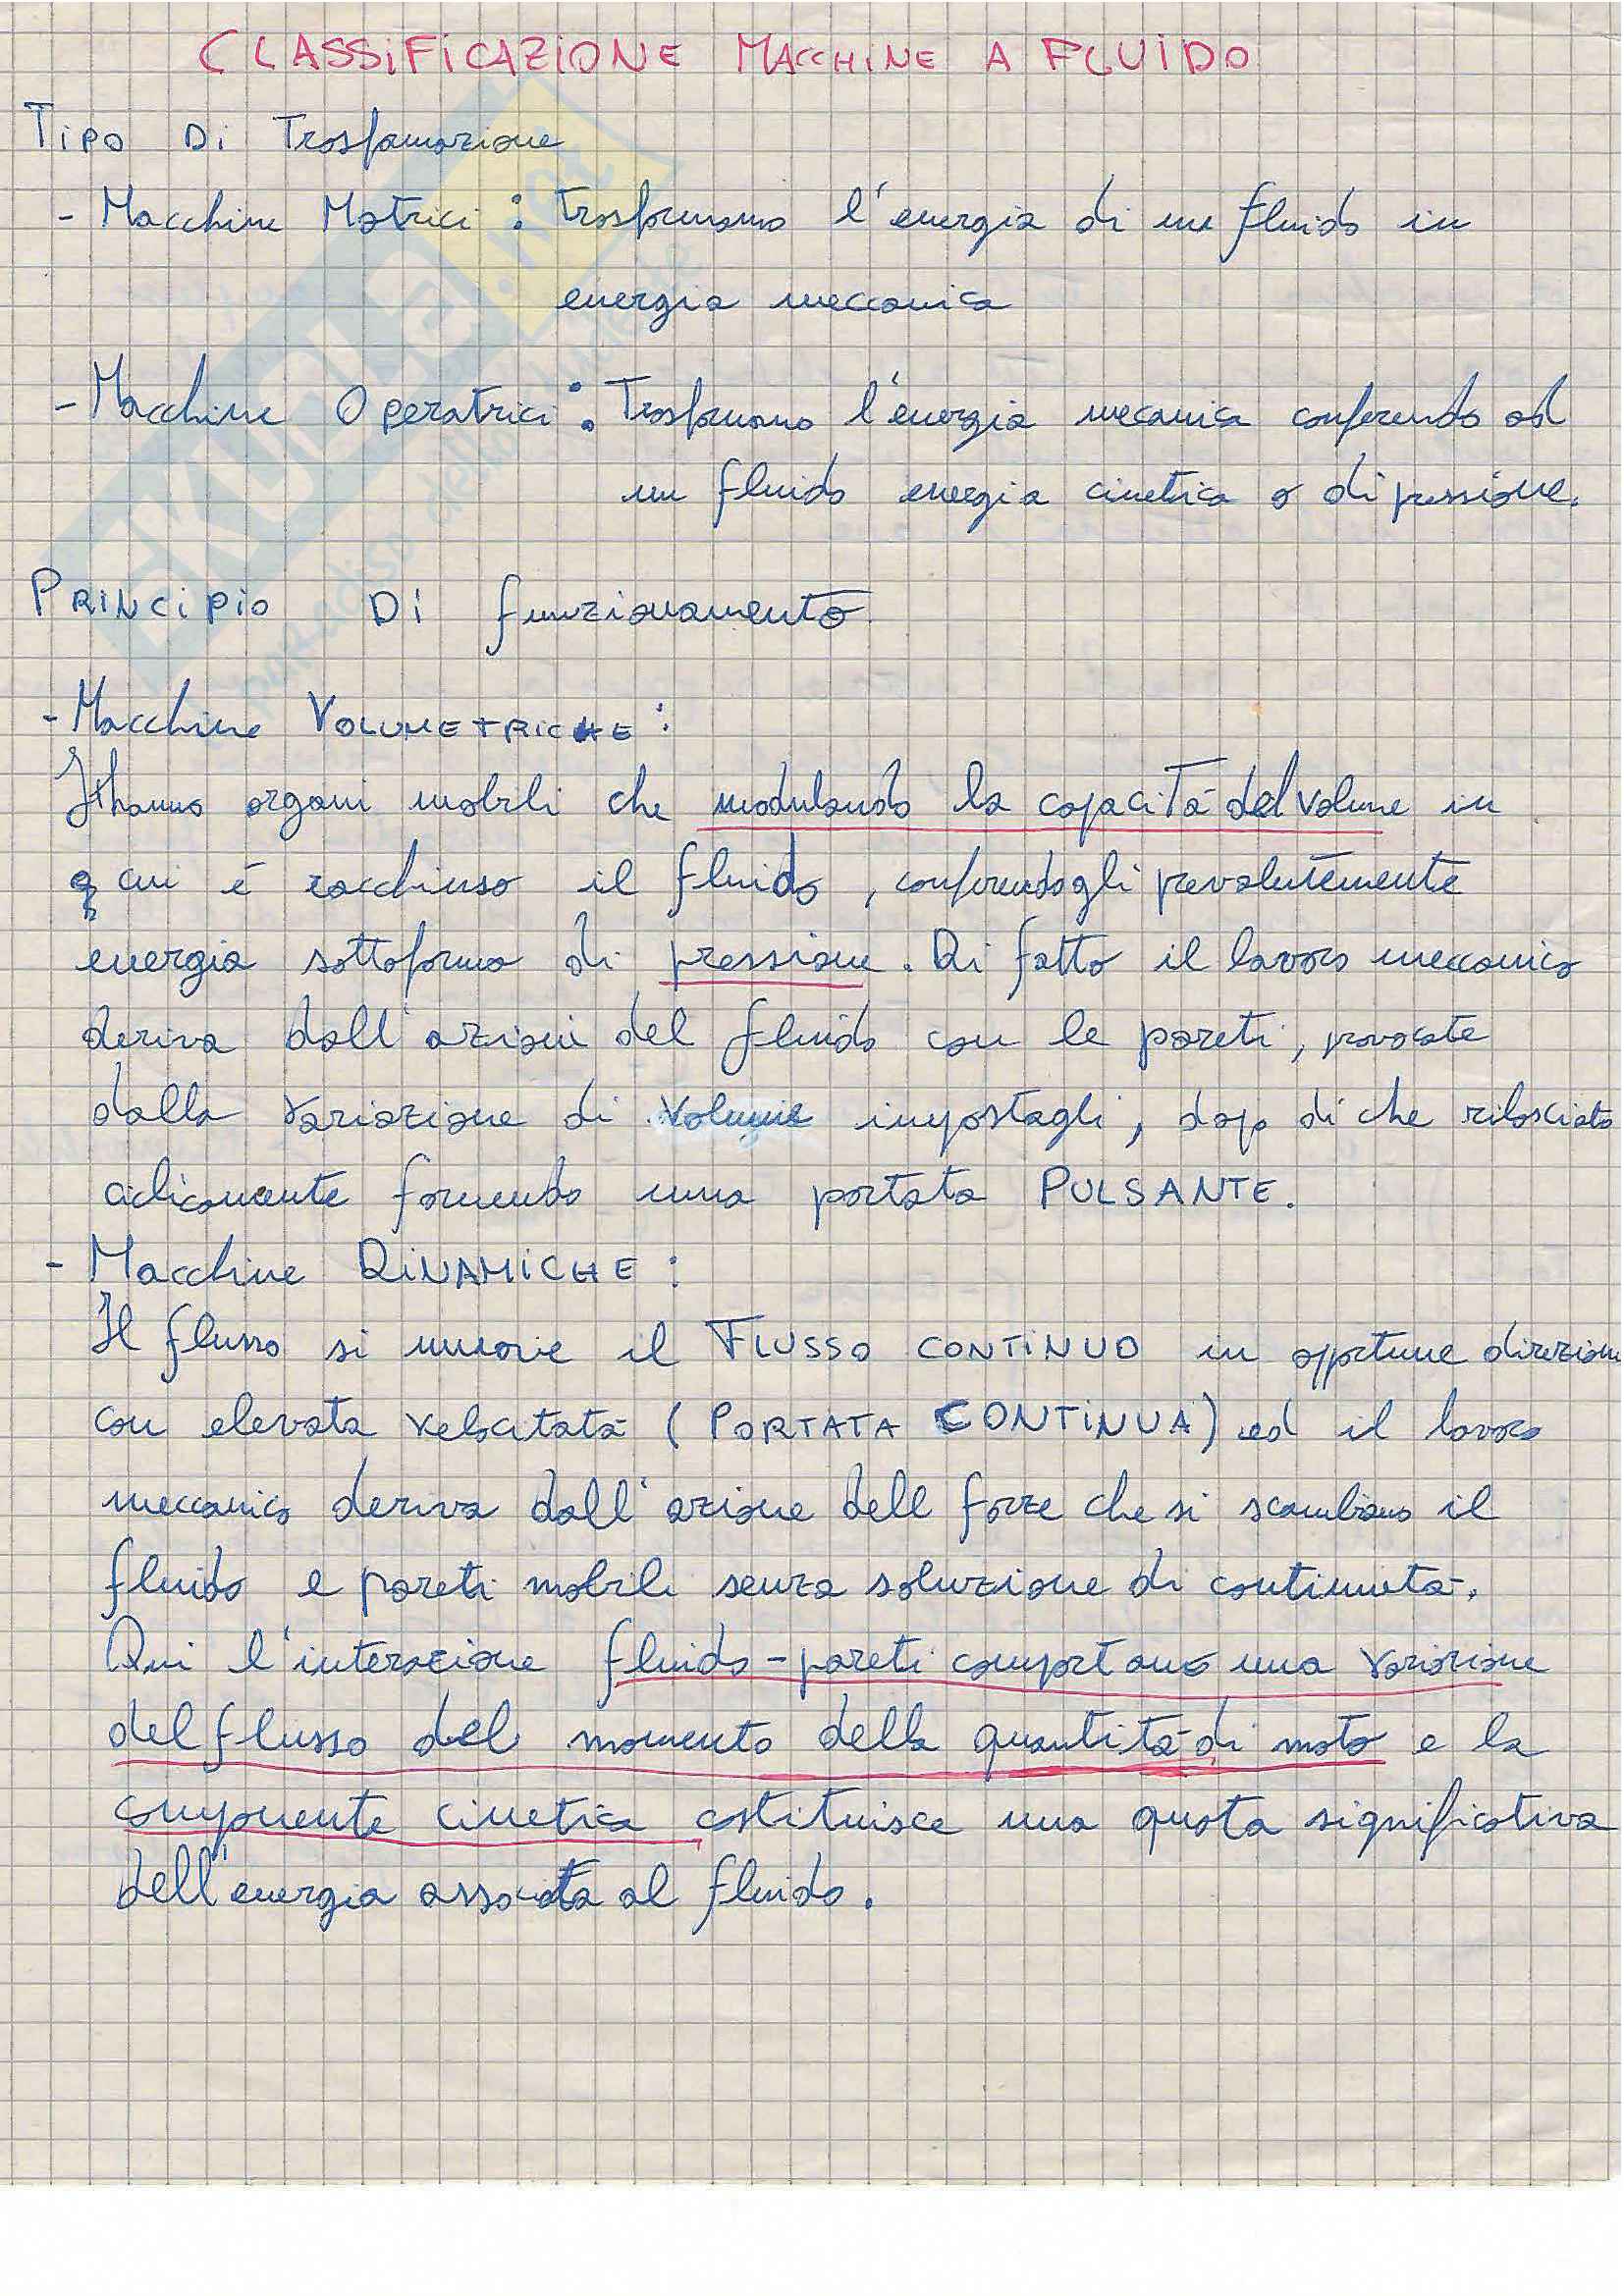 CLASSIFICAZIONE MACCHINE A FLUIDO
TIPO Di Trasformazione
- Macchine Motrici : Trasformano l'energia di un fluido in
energia meccanica
- Macchine Operatrici : Trasformano l'energia mecanica conferendo ad
un fluido energia cinetica o di pressione.
PRINCIPIO Di funzionamento
- Macchine VOLUMETRICHE :
Hanno organi mobili che modulando la capacità del volume in
cui é racchiuso il fluido, conferendogli prevalentemente
energia sottoforma di pressione. Di fatto il lavoro meccanico
deriva dall'azioni del fluido con le pareti, provocate
dalla variazione di volume impostagli, dopo di che rilasciato
ciclicamente fornendo una portata PULSANTE.
- Macchine DiNAMiCHE :
Il flusso si muove il FLUSSO CONTiNUO in opportune direzioni
con elevata velocitatà (PORTATA CONTiNUA) ed il lavoro
meccanico deriva dall'azione dell forze che si scambiano il
fluido e pareti mobili senza soluzione di continuità.
Qui l'interazione fluido-pareti comportano una variazione
del flusso del momento della quantità di moto e la
componente cinetica costituisce una quota significativa
dell'energia associata al fluido.
SKUOLA.net